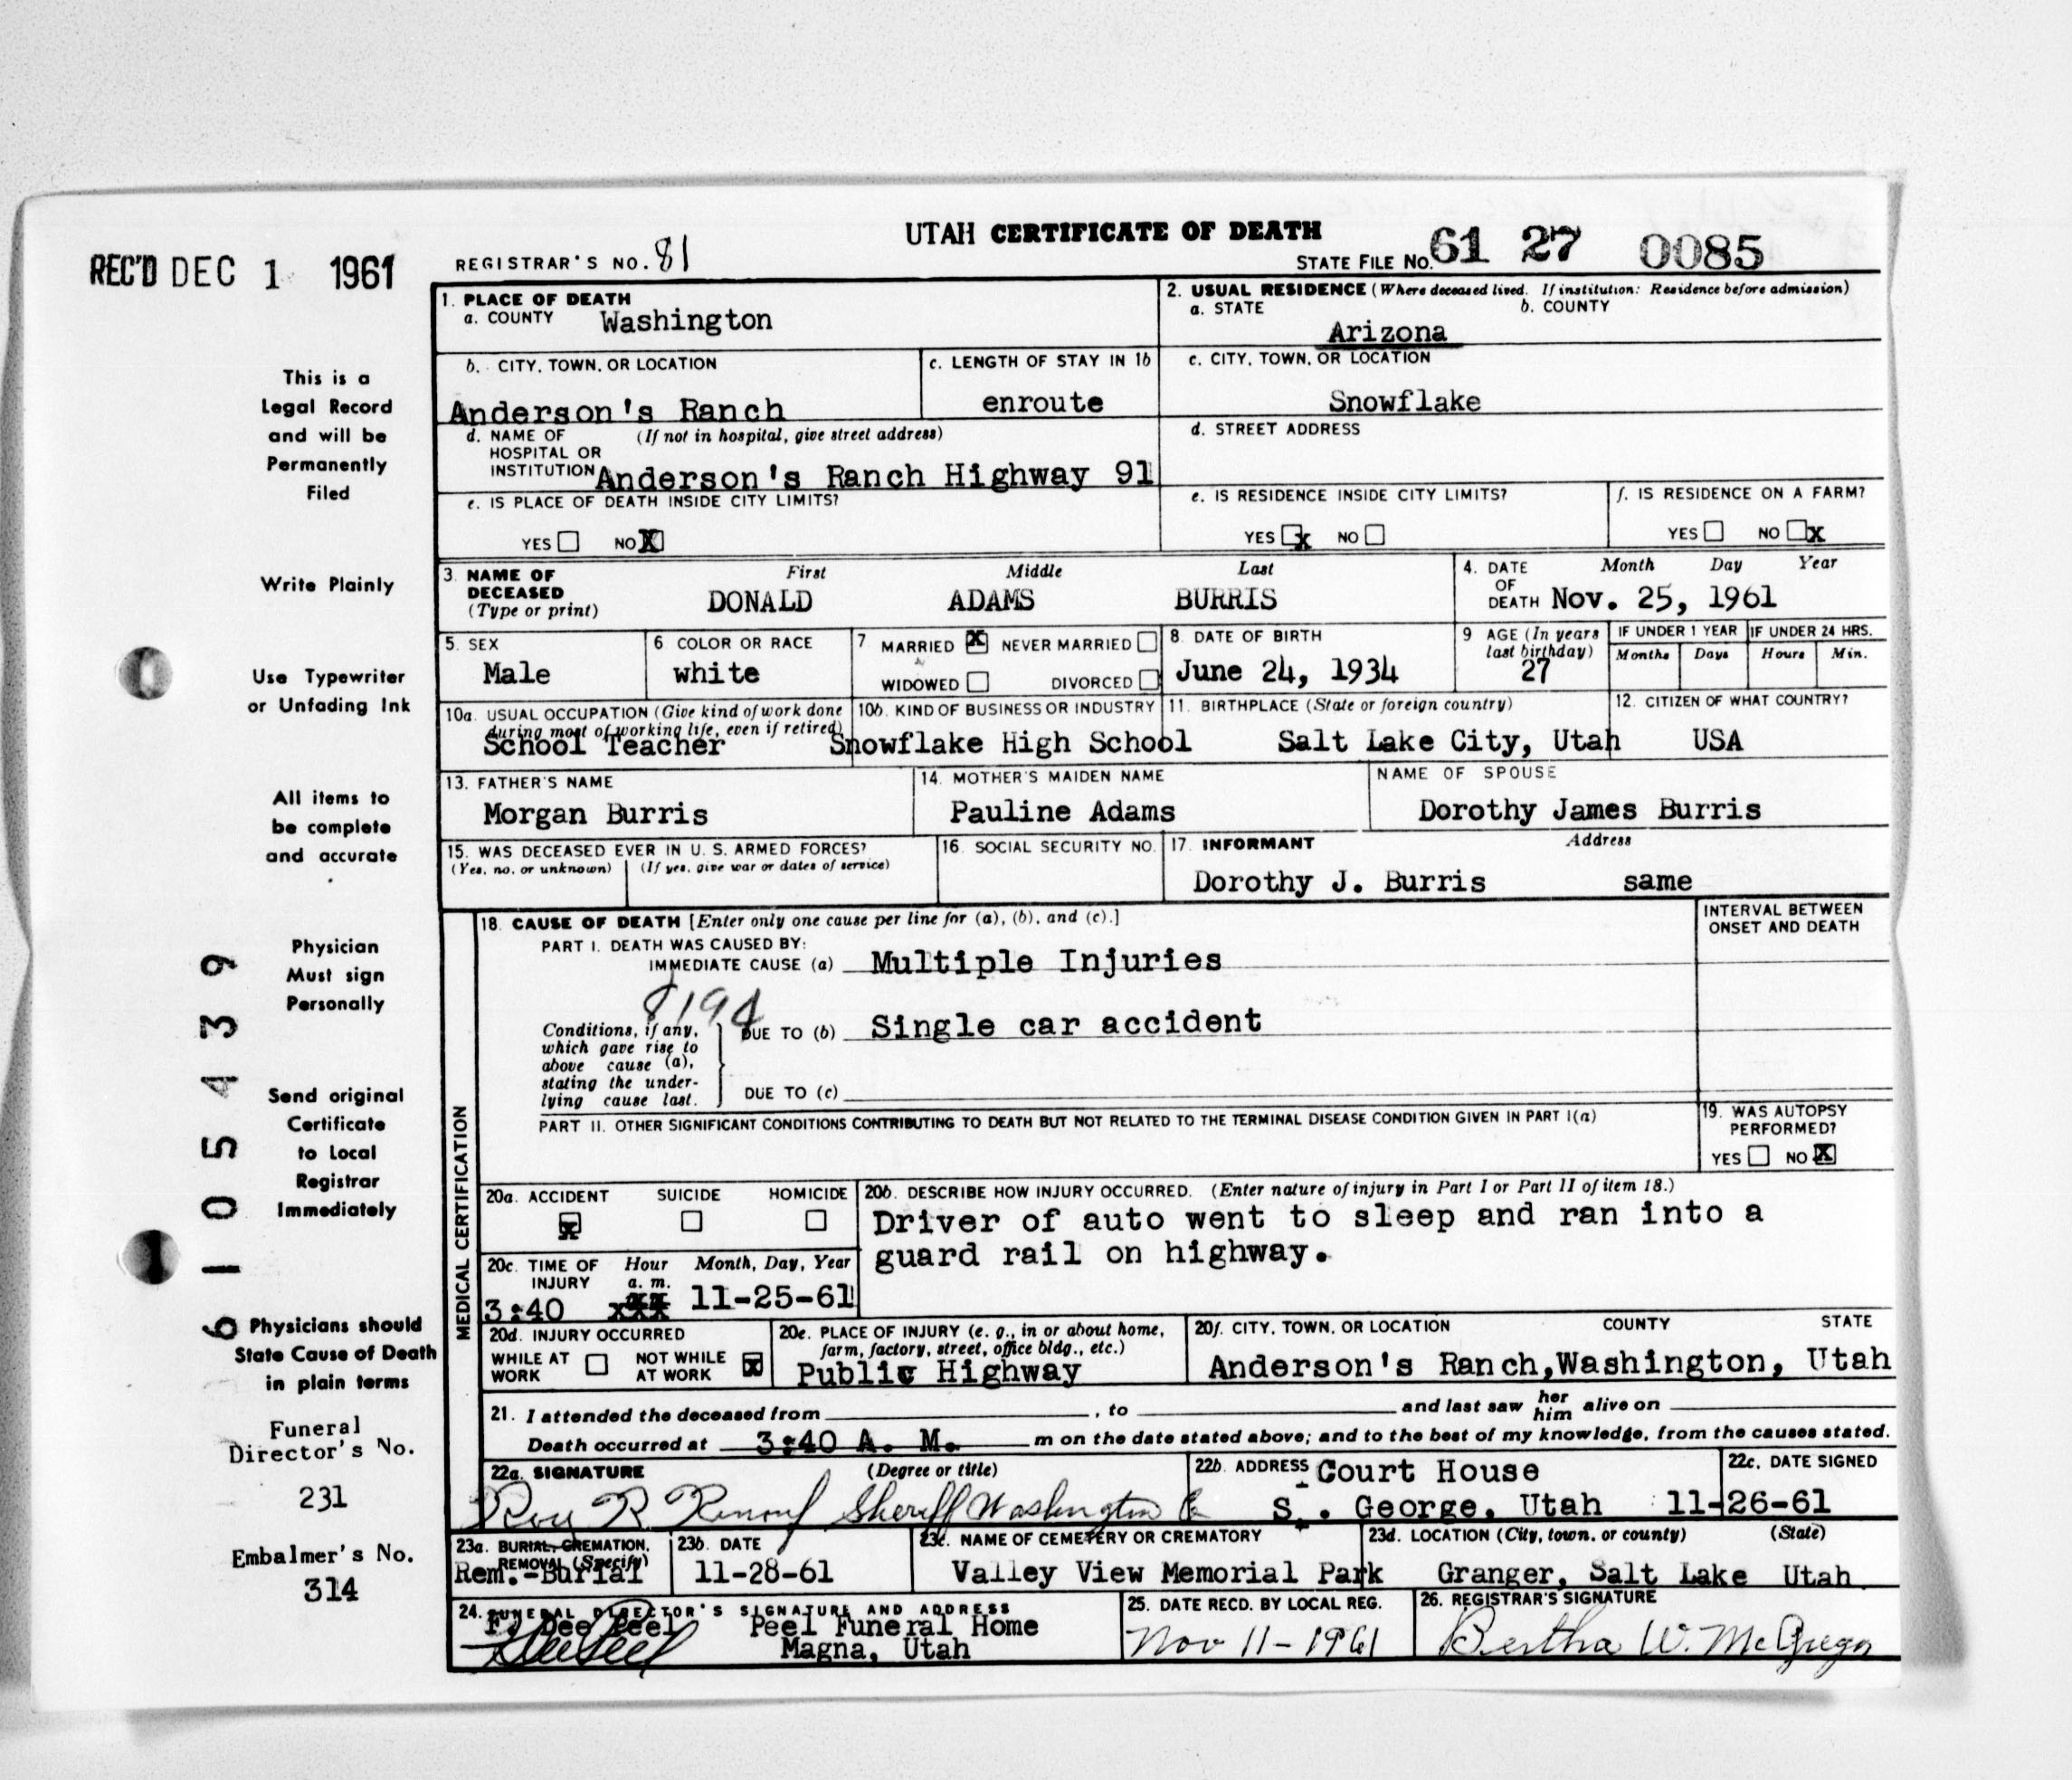 UTAH CERTIFICATE OF DEATH
REC'D DEC 1 1961
REGISTRAR'S NO. 81
STATE FILE NO. 61 27 0085
1. PLACE OF DEATH
a. COUNTY Washington
2. USUAL RESIDENCE (Where deceased lived. If institution: Residence before admission)
a. STATE Arizona b. COUNTY
b. CITY, TOWN, OR LOCATION Anderson's Ranch
c. LENGTH OF STAY IN 1b enroute
c. CITY, TOWN, OR LOCATION Snowflake
d. NAME OF HOSPITAL OR INSTITUTION (If not in hospital, give street address)
Anderson's Ranch Highway 91
d. STREET ADDRESS
e. IS PLACE OF DEATH INSIDE CITY LIMITS?
YES NO X
e. IS RESIDENCE INSIDE CITY LIMITS?
YES x NO
f. IS RESIDENCE ON A FARM?
YES NO x
3. NAME OF DECEASED (Type or print)
First Middle Last
DONALD ADAMS BURRIS
4. DATE OF DEATH Month Day Year
Nov. 25, 1961
5. SEX Male
6 COLOR OR RACE white
7 MARRIED X NEVER MARRIED
WIDOWED DIVORCED
8. DATE OF BIRTH June 24, 1934
9 AGE (In years last birthday) 27
IF UNDER 1 YEAR Months Days
IF UNDER 24 HRS. Hours Min.
10a. USUAL OCCUPATION (Give kind of work done during most of working life, even if retired)
School Teacher
10b. KIND OF BUSINESS OR INDUSTRY
Snowflake High School
11. BIRTHPLACE (State or foreign country)
Salt Lake City, Utah
12. CITIZEN OF WHAT COUNTRY?
USA
13. FATHER'S NAME
Morgan Burris
14. MOTHER'S MAIDEN NAME
Pauline Adams
NAME OF SPOUSE
Dorothy James Burris
15. WAS DECEASED EVER IN U. S. ARMED FORCES?
(Yes, no, or unknown) (If yes, give war or dates of service)
16. SOCIAL SECURITY NO.
17. INFORMANT Address
Dorothy J. Burris same
MEDICAL CERTIFICATION
18. CAUSE OF DEATH [Enter only one cause per line for (a), (b), and (c).]
INTERVAL BETWEEN ONSET AND DEATH
PART I. DEATH WAS CAUSED BY:
IMMEDIATE CAUSE (a) Multiple Injuries
Conditions, if any, which gave rise to above cause (a), stating the underlying cause last.
DUE TO (b) Single car accident
DUE TO (c)
PART II. OTHER SIGNIFICANT CONDITIONS CONTRIBUTING TO DEATH BUT NOT RELATED TO THE TERMINAL DISEASE CONDITION GIVEN IN PART I(a)
19. WAS AUTOPSY PERFORMED?
YES NO X
20a. ACCIDENT x SUICIDE HOMICIDE
20b. DESCRIBE HOW INJURY OCCURRED. (Enter nature of injury in Part I or Part II of item 18.)
Driver of auto went to sleep and ran into a
guard rail on highway.
20c. TIME OF INJURY Hour Month, Day, Year
a. m.
3:40 xxx 11-25-61
20d. INJURY OCCURRED
WHILE AT WORK NOT WHILE AT WORK x
20e. PLACE OF INJURY (e. g., in or about home, farm, factory, street, office bldg., etc.)
Public Highway
20f. CITY, TOWN, OR LOCATION COUNTY STATE
Anderson's Ranch,Washington, Utah
21. I attended the deceased from , to and last saw her him alive on
Death occurred at 3:40 A. M. m on the date stated above; and to the best of my knowledge, from the causes stated.
22a. SIGNATURE (Degree or title)
Roy R Renouf Sheriff Washington Co
22b. ADDRESS Court House
St. George, Utah
22c. DATE SIGNED
11-26-61
23a. BURIAL, CREMATION, REMOVAL (Specify)
Rem.-Burial
23b. DATE
11-28-61
23c. NAME OF CEMETERY OR CREMATORY
Valley View Memorial Park
23d. LOCATION (City, town, or county) (State)
Granger, Salt Lake Utah
24. FUNERAL DIRECTOR'S SIGNATURE AND ADDRESS
F. Dee Peel Peel Funeral Home
Magna, Utah
25. DATE RECD. BY LOCAL REG.
Nov 11-1961
26. REGISTRAR'S SIGNATURE
Bertha W. McGregor
This is a
Legal Record
and will be
Permanently
Filed
Write Plainly
Use Typewriter
or Unfading Ink
All items to
be complete
and accurate
Physician
Must sign
Personally
Send original
Certificate
to Local
Registrar
Immediately
Physicians should
State Cause of Death
in plain terms
Funeral
Director's No.
231
Embalmer's No.
314
6105439